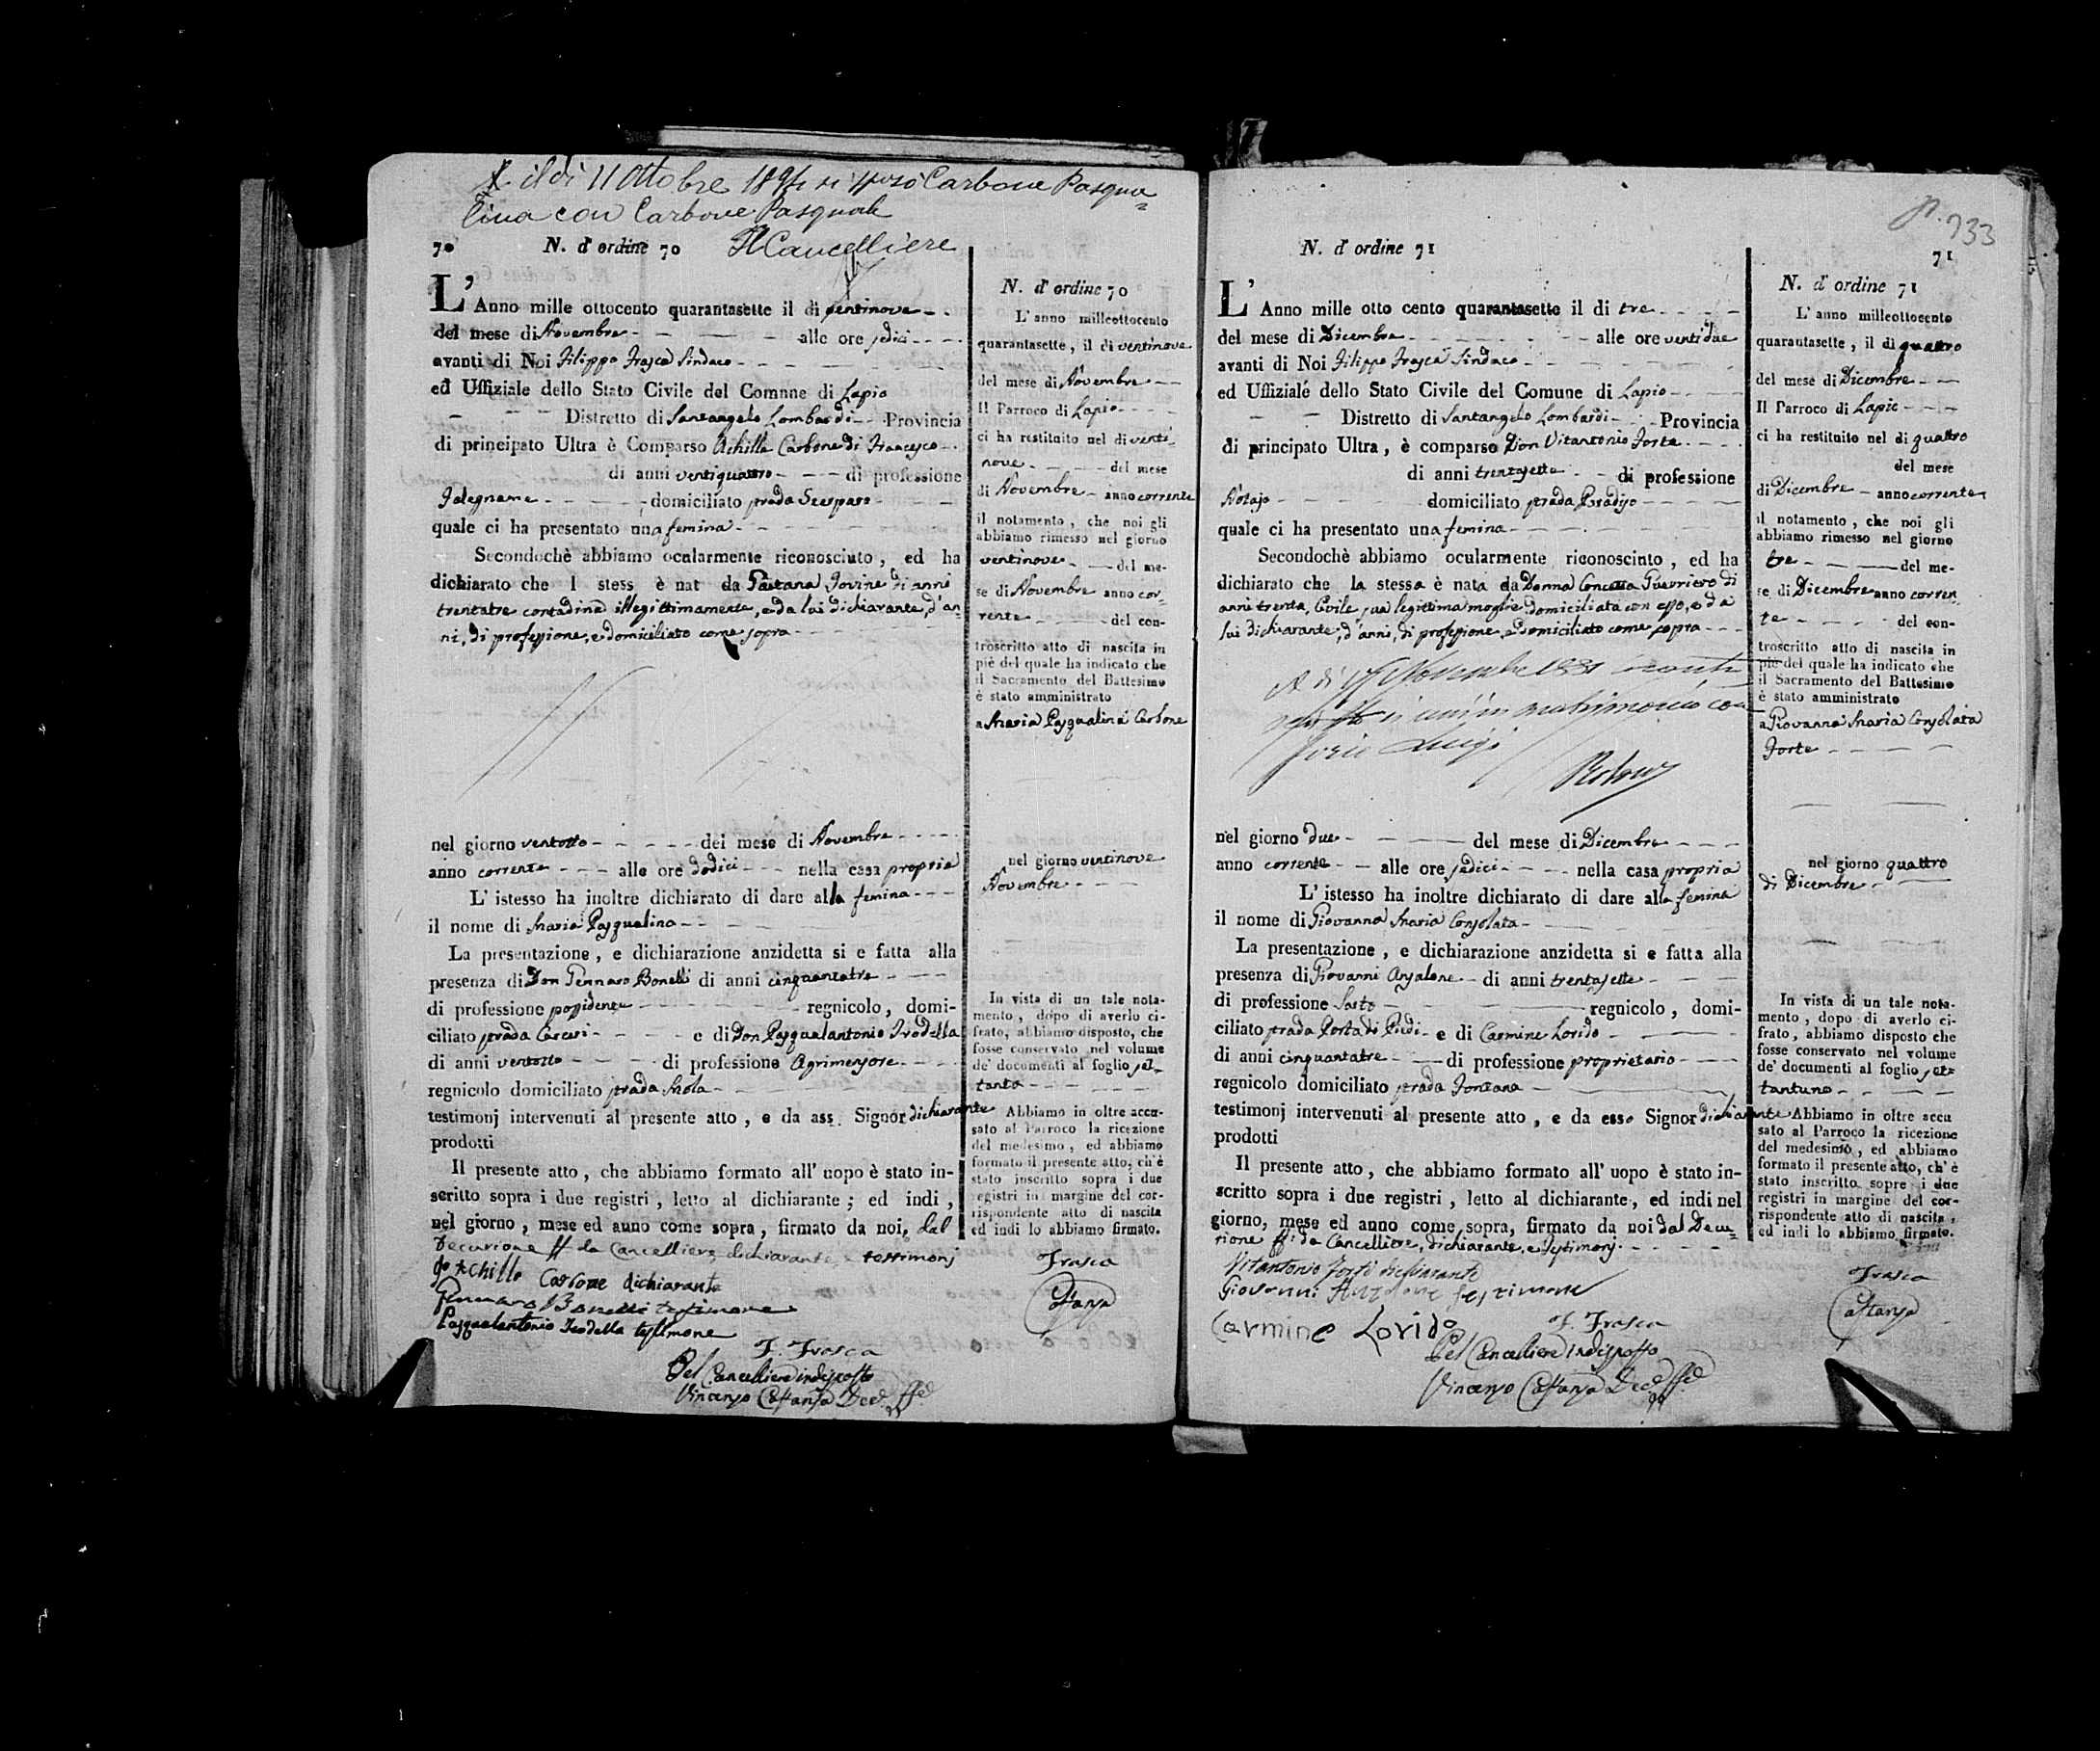 il di 11 Ottobre 1894 si sposò Carbone Pasqua=
lina con Carbone Pasquale
Il Cancelliere
70 N. d' ordine 70
L' Anno mille ottocento quarantasette il di ventinove
del mese di Novembre alle ore sedici
avanti di Noi Filippo Frasca Sindaco
ed Uffiziale dello Stato Civile del Comune di Lapio
Distretto di Santangelo Lombardi Provincia
di principato Ultra è Comparso Achille Carbone di Francesco
di anni ventiquattro di professione
Falegname domiciliato strada
quale ci ha presentato una femina
Secondochè abbiamo ocularmente riconosciuto, ed ha
dichiarato che l stess è nat da Gaetana Iovine di anni
trentatre contadina illegittimamente, e da lui dichiarante, d'an
ni, di professione, e domiciliato come sopra
nel giorno ventotto del mese di Novembre
anno corrente alle ore dodici nella casa propria
L' istesso ha inoltre dichiarato di dare alla femina
il nome di Maria Pasqualina
La presentazione, e dichiarazione anzidetta si e fatta alla
presenza di Don Gennaro Bonelli di anni cinquantatre
di professione possidente regnicolo, domi-
ciliato strada Carceri e di Don Pasqualantonio Trodella
di anni ventotto di professione Agrimensore
regnicolo domiciliato strada
testimonj intervenuti al presente atto, e da ass. Signor dichiarante
prodotti
Il presente atto, che abbiamo formato all' uopo è stato in-
scritto sopra i due registri, letto al dichiarante; ed indi,
nel giorno, mese ed anno come sopra, firmato da noi, dal
Decurione ff da Cancelliere, dichiarante, e testimonj
Achille Carbone dichiarante
Gennaro Bonelli testimone
Pasqualantonio Trodella testimone
F. Frasca
Pel Cancelliere indisposto
Vincenzo Costanza Dec. ff.
N. d' ordine 70
L' anno milleottocento
quarantasette, il di ventinove
del mese di Novembre
Il Parroco di Lapio
ci ha restituito nel di venti-
nove del mese
di Novembre anno corrente
il notamento, che noi gli
abbiamo rimesso nel giorno
ventinove del me-
se di Novembre anno cor-
rente del con-
troscritto atto di nascita in
piè del quale ha indicato che
il Sacramento del Battesimo
è stato amministrato
a Maria Pasqualina Carbone
nel giorno ventinove
Novembre
In vista di un tale nota-
mento, dopo di averlo ci-
frato, abbiamo disposto, che
fosse conservato nel volume
de' documenti al foglio set-
tanta
Abbiamo in oltre accu-
sato al Parroco la ricezione
del medesimo, ed abbiamo
formato il presente atto, ch'è
stato inscritto sopra i due
registri in margine del cor-
rispondente atto di nascita
ed indi lo abbiamo firmato.
Frasca
Costanza
933
N. d' ordine 71 71
L' Anno mille otto cento quarantasette il di tre
del mese di Dicembre alle ore ventidue
avanti di Noi Filippo Frasca Sindaco
ed Uffiziale dello Stato Civile del Comune di Lapio
Distretto di Santangelo Lombardi Provincia
di principato Ultra, è comparso Don Vitantonio Forte
di anni trentasette di professione
Notajo domiciliato strada
quale ci ha presentato una femina
Secondochè abbiamo ocularmente riconosciuto, ed ha
dichiarato che la stessa è nata da Donna Concetta Guerriero di
anni trenta, Civile, sua legittima moglie domiciliata con esso, e da
lui dichiarante, d'anni, di professione, e domiciliato come sopra
A di Novembre
si unì in matrimonio con
Luigi
nel giorno due del mese di Dicembre
anno corrente alle ore sedici nella casa propria
L' istesso ha inoltre dichiarato di dare alla femina
il nome di Giovanna Maria Consolata
La presentazione, e dichiarazione anzidetta si e fatta alla
presenza di Giovanni Anzalone di anni trentasette
di professione Sarto regnicolo, domi-
ciliato strada Porta di Piedi e di Carmine Lorido
di anni cinquantatre di professione proprietario
regnicolo domiciliato strada Fontana
testimonj intervenuti al presente atto, e da esso Signor dichiarante
prodotti
Il presente atto, che abbiamo formato all' uopo è stato in-
scritto sopra i due registri, letto al dichiarante, ed indi nel
giorno, mese ed anno come sopra, firmato da noi dal Decu-
rione ff. da Cancelliere, dichiarante, e testimonj
Vitantonio Forte dichiarante
Giovanni Anzalone testimone
Carmine Lorido
F. Frasca
Pel Cancelliere indisposto
Vincenzo Costanza Dec. ff.
N. d' ordine 71
L' anno milleottocento
quarantasette, il di quattro
del mese di Dicembre
Il Parroco di Lapio
ci ha restituito nel di quattro
del mese
di Dicembre anno corrente
il notamento, che noi gli
abbiamo rimesso nel giorno
tre del me-
se di Dicembre anno corren-
te del con-
troscritto atto di nascita in
piè del quale ha indicato che
il Sacramento del Battesimo
è stato amministrato
a Giovanna Maria Consolata
Forte
nel giorno quattro
di Dicembre
In vista di un tale nota-
mento, dopo di averlo ci-
frato, abbiamo disposto che
fosse conservato nel volume
de' documenti al foglio set=
tantuno
Abbiamo in oltre accu
sato al Parroco la ricezione
del medesimo, ed abbiamo
formato il presente atto, ch'è
stato inscritto sopre i due
registri in margine del cor-
rispondente atto di nascita,
ed indi lo abbiamo firmato.
Frasca
Costanza